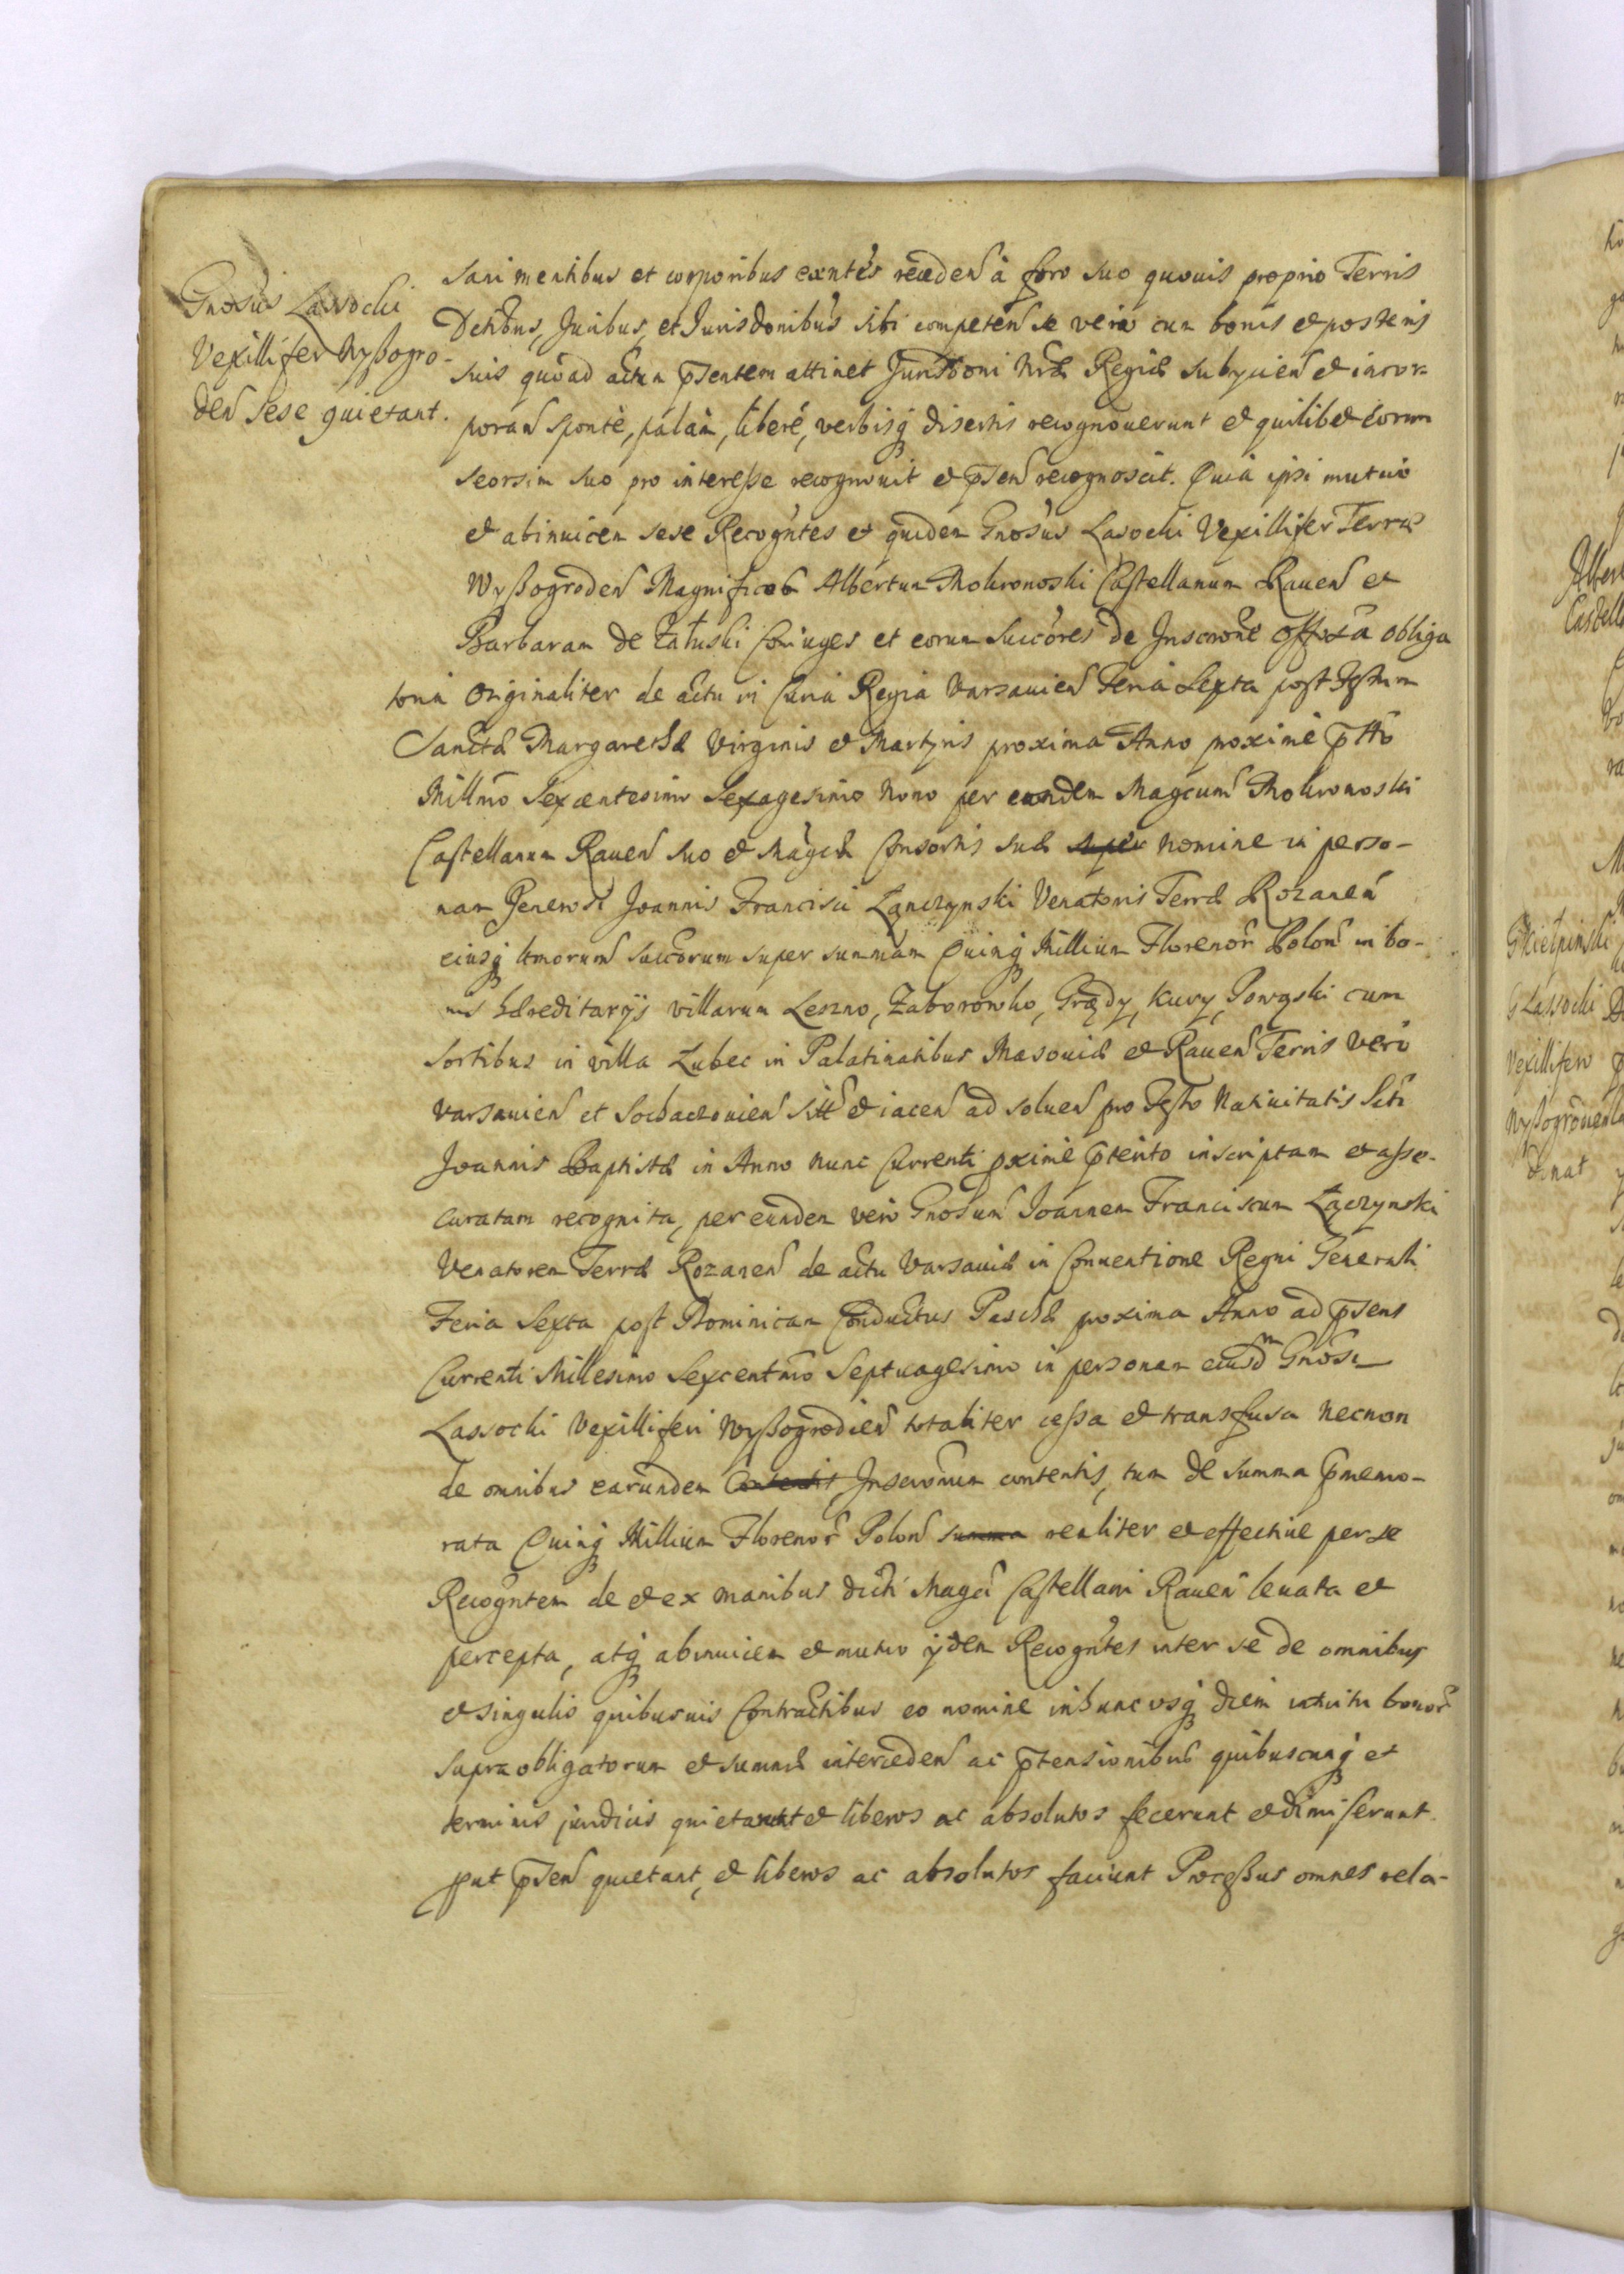 Gnosus Lassocki
Vexillifer Wyßogro-
den sese quietant.
sani mentibus et corporibus exntes receden à foro suo quovis proprio Terris
Dctibus, Juribus, et Jurisdonibus sibi competen se vero cum bonis et posteris
suis quoad actum pntem attinet Jurisdoni Nræ Regiæ subycien et incor-
poran sponte, palam, libere, verbisq disertis recognoverunt et quilibet eorum
seorsim suo pro interesse recognovit et psen recognoscit. Quia ipsi mutuo
et abinuicem sese Recogntes et quidem Gnosus Lasocki Vexillifer Terræ
Wyßogroden Magnificos Albertum Mokronoski Castellanum Rauen et
Barbaram de Załuski Coniuges et eorum succores de Inscrone obliga
toria originaliter de actu in Curia Regia Varsauien Feria Sexta post Festum
Sanctæ Margarethæ Virginis et Martyris proxima Anno proxime ptto
Millmo Sexcentesimo Sexagesimo Nono per eundem Magcum Mokronoski
Castellanum Rauen suo et Magcæ Consortis suæ super nomine in perso-
nam Generosi Joannis Francisci Łączynski Venatoris Terræ Rozanen
eiusq ltmorum succorum super summam Quinq Millium Florenor Polon in bo-
nis hæreditarijs villarum Leszno, Zaborowko, Grądy, Kuvy, Powązki cum
sortibus in villa Zubec in Palatinatibus Masouiæ et Rauen Terris vero
Varsauien et Sochaczouien sitt et iacen ad soluen pro Festo Natiuitatis Scti
Joannis Baptistæ in Anno nunc Currenti pxime pterito inscriptam et asse-
curatam recognita, per eundem vero Gnosum Joannem Franciscum Łączynski
Venatorem Terræ Rozanen de actu Varsauiæ in Conventione Regni Generali
Feria Sexta post Dominicam Conductus Paschæ proxima Anno ad psens
Currenti Millesimo Sexcentmo Septuagesimo in personam eiusdm Gnosi
Lassocki Vexilliferi Wyßogrodien totaliter cessa et transfusa necnon
de omnibus earundem Contentis Inscronum contentis, tum de summa pmemo-
rata Quinq Millium Florenor Polon summa realiter et effective per se
Recogntem de et ex manibus dicti Magci Castellani Rauen leuata et
percepta, atq abinuicem et mutuo ijdem Recogntes inter se de omnibus
et singulis quibusuis Contractibus eo nomine in hunc usq diem intuitu bonor
supra obligatorum et summæ interceden ac ptensionibus quibuscunq et
terminis juridicis quietarunt et liberos ac absolutos fecerunt et dimiserunt
put psen quietant, et liberos ac absolutos faciunt Processus omnes rela-
Albert
Castell
G Kiełpinski
G Lassocki
Vexillifero